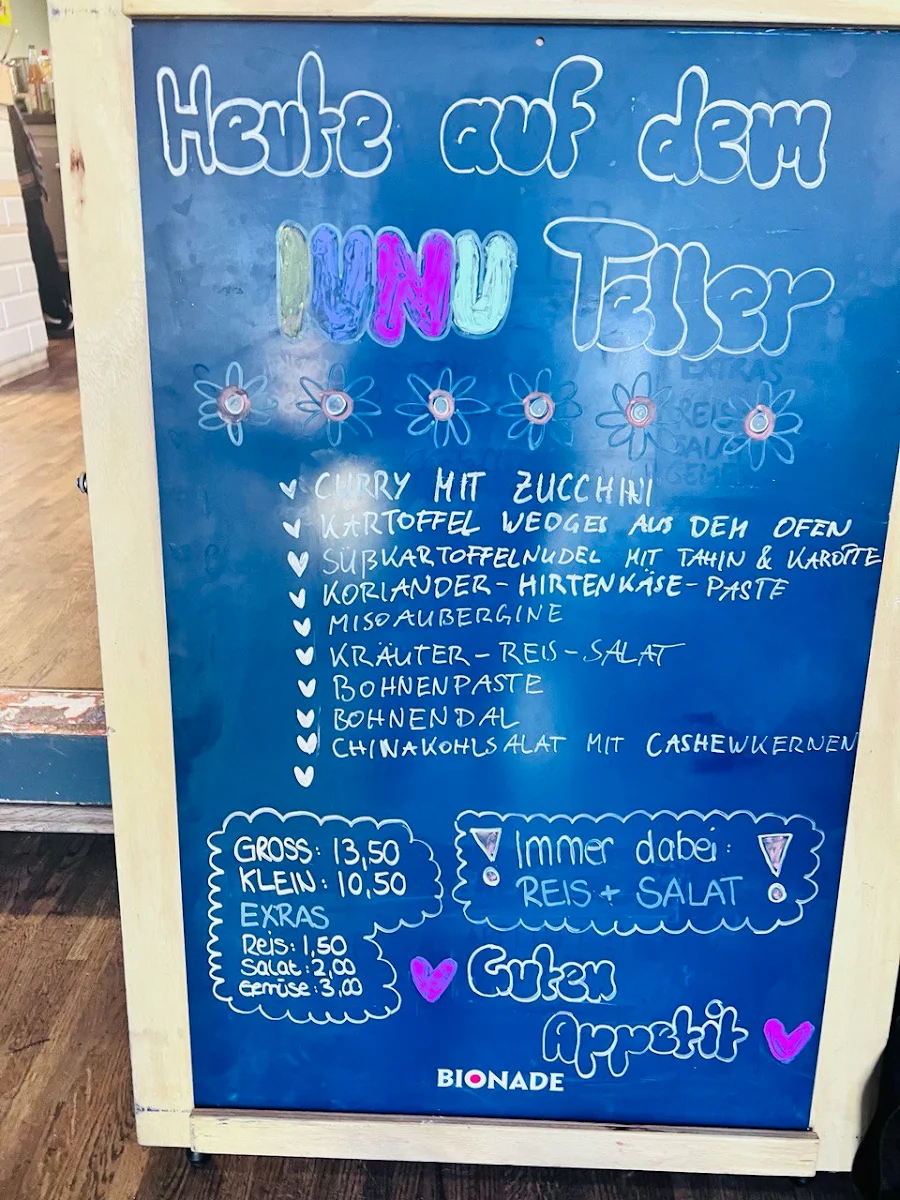 Heute auf dem
IUNU Teller
EXTRAS
REIS
CURRY MIT ZUCCHINI
KARTOFFEL WEDGES AUS DEM OFEN
SÜßKARTOFFELNUDEL MIT TAHIN & KAROTTE
KORIANDER-HIRTENKÄSE-PASTE
MISOAUBERGINE
KRÄUTER-REIS-SALAT
BOHNENPASTE
BOHNENDAL
CHINAKOHLSALAT MIT CASHEWKERNEN
GROSS: 13,50
KLEIN: 10,50
EXRAS
Reis: 1,50
Salat: 2,00
Gemüse: 3,00
! Immer dabei: !
REIS + SALAT
Guten
Appetit
BIONADE